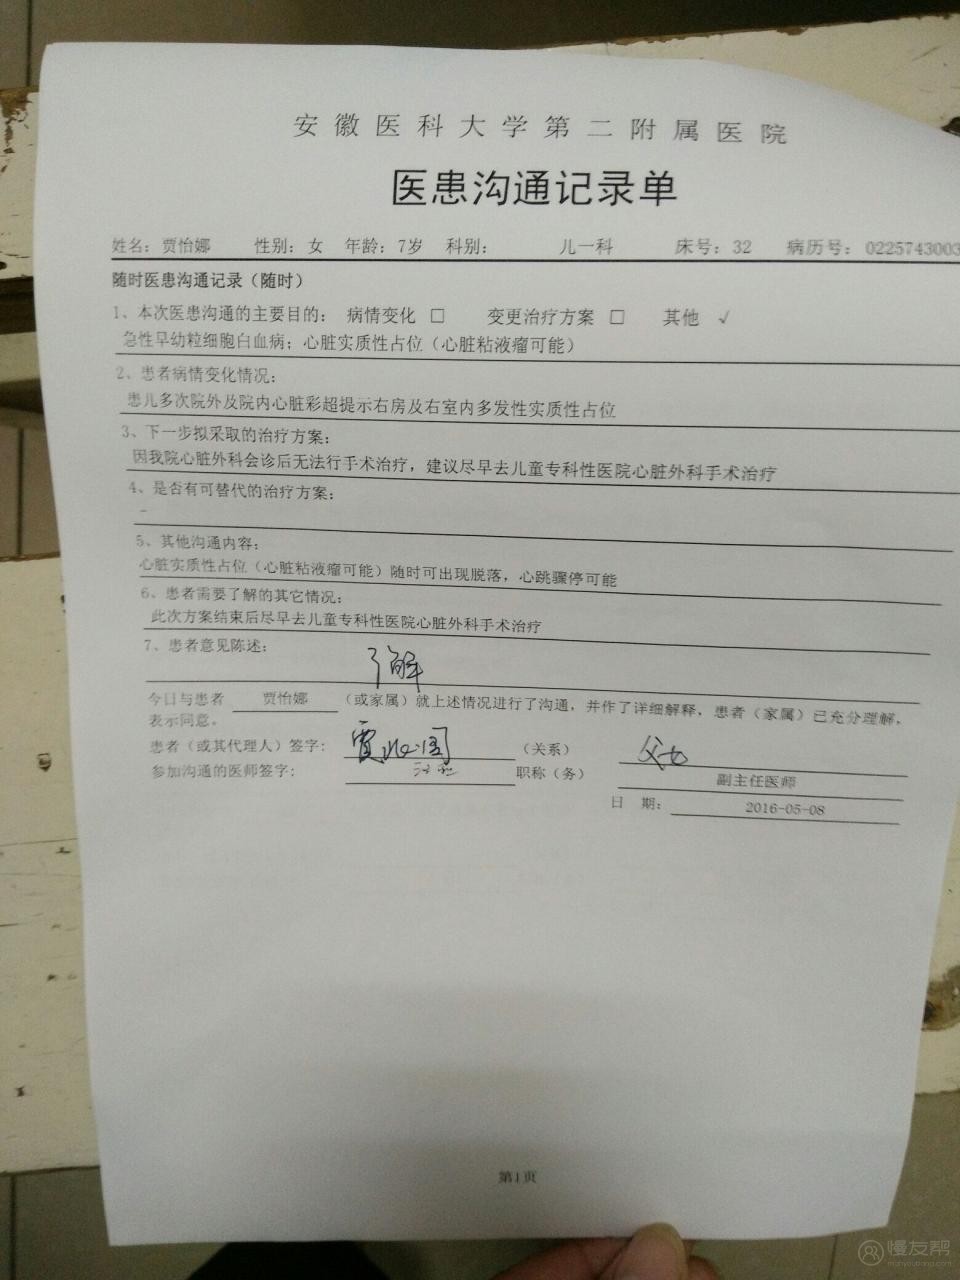 安徽医科大学第二附属医院
医患沟通记录单
姓名：贾怡娜 性别：女 年龄：7岁 科别： 儿一科 床号：32 病历号：0225743003
随时医患沟通记录（随时）
1、本次医患沟通的主要目的： 病情变化 □ 变更治疗方案 □ 其他 √
急性早幼粒细胞白血病；心脏实质性占位（心脏粘液瘤可能）
2、患者病情变化情况：
患儿多次院外及院内心脏彩超提示右房及右室内多发性实质性占位
3、下一步拟采取的治疗方案：
因我院心脏外科会诊后无法行手术治疗，建议尽早去儿童专科性医院心脏外科手术治疗
4、是否有可替代的治疗方案：
-
5、其他沟通内容：
心脏实质性占位（心脏粘液瘤可能）随时可出现脱落，心跳骤停可能
6、患者需要了解的其它情况：
此次方案结束后尽早去儿童专科性医院心脏外科手术治疗
7、患者意见陈述：
了解
今日与患者 贾怡娜 （或家属）就上述情况进行了沟通，并作了详细解释，患者（家属）已充分理解，
表示同意。
患者（或其代理人）签字： （关系） 父女
参加沟通的医师签字： 职称（务） 副主任医师
日 期： 2016-05-08
第1页
慢友帮